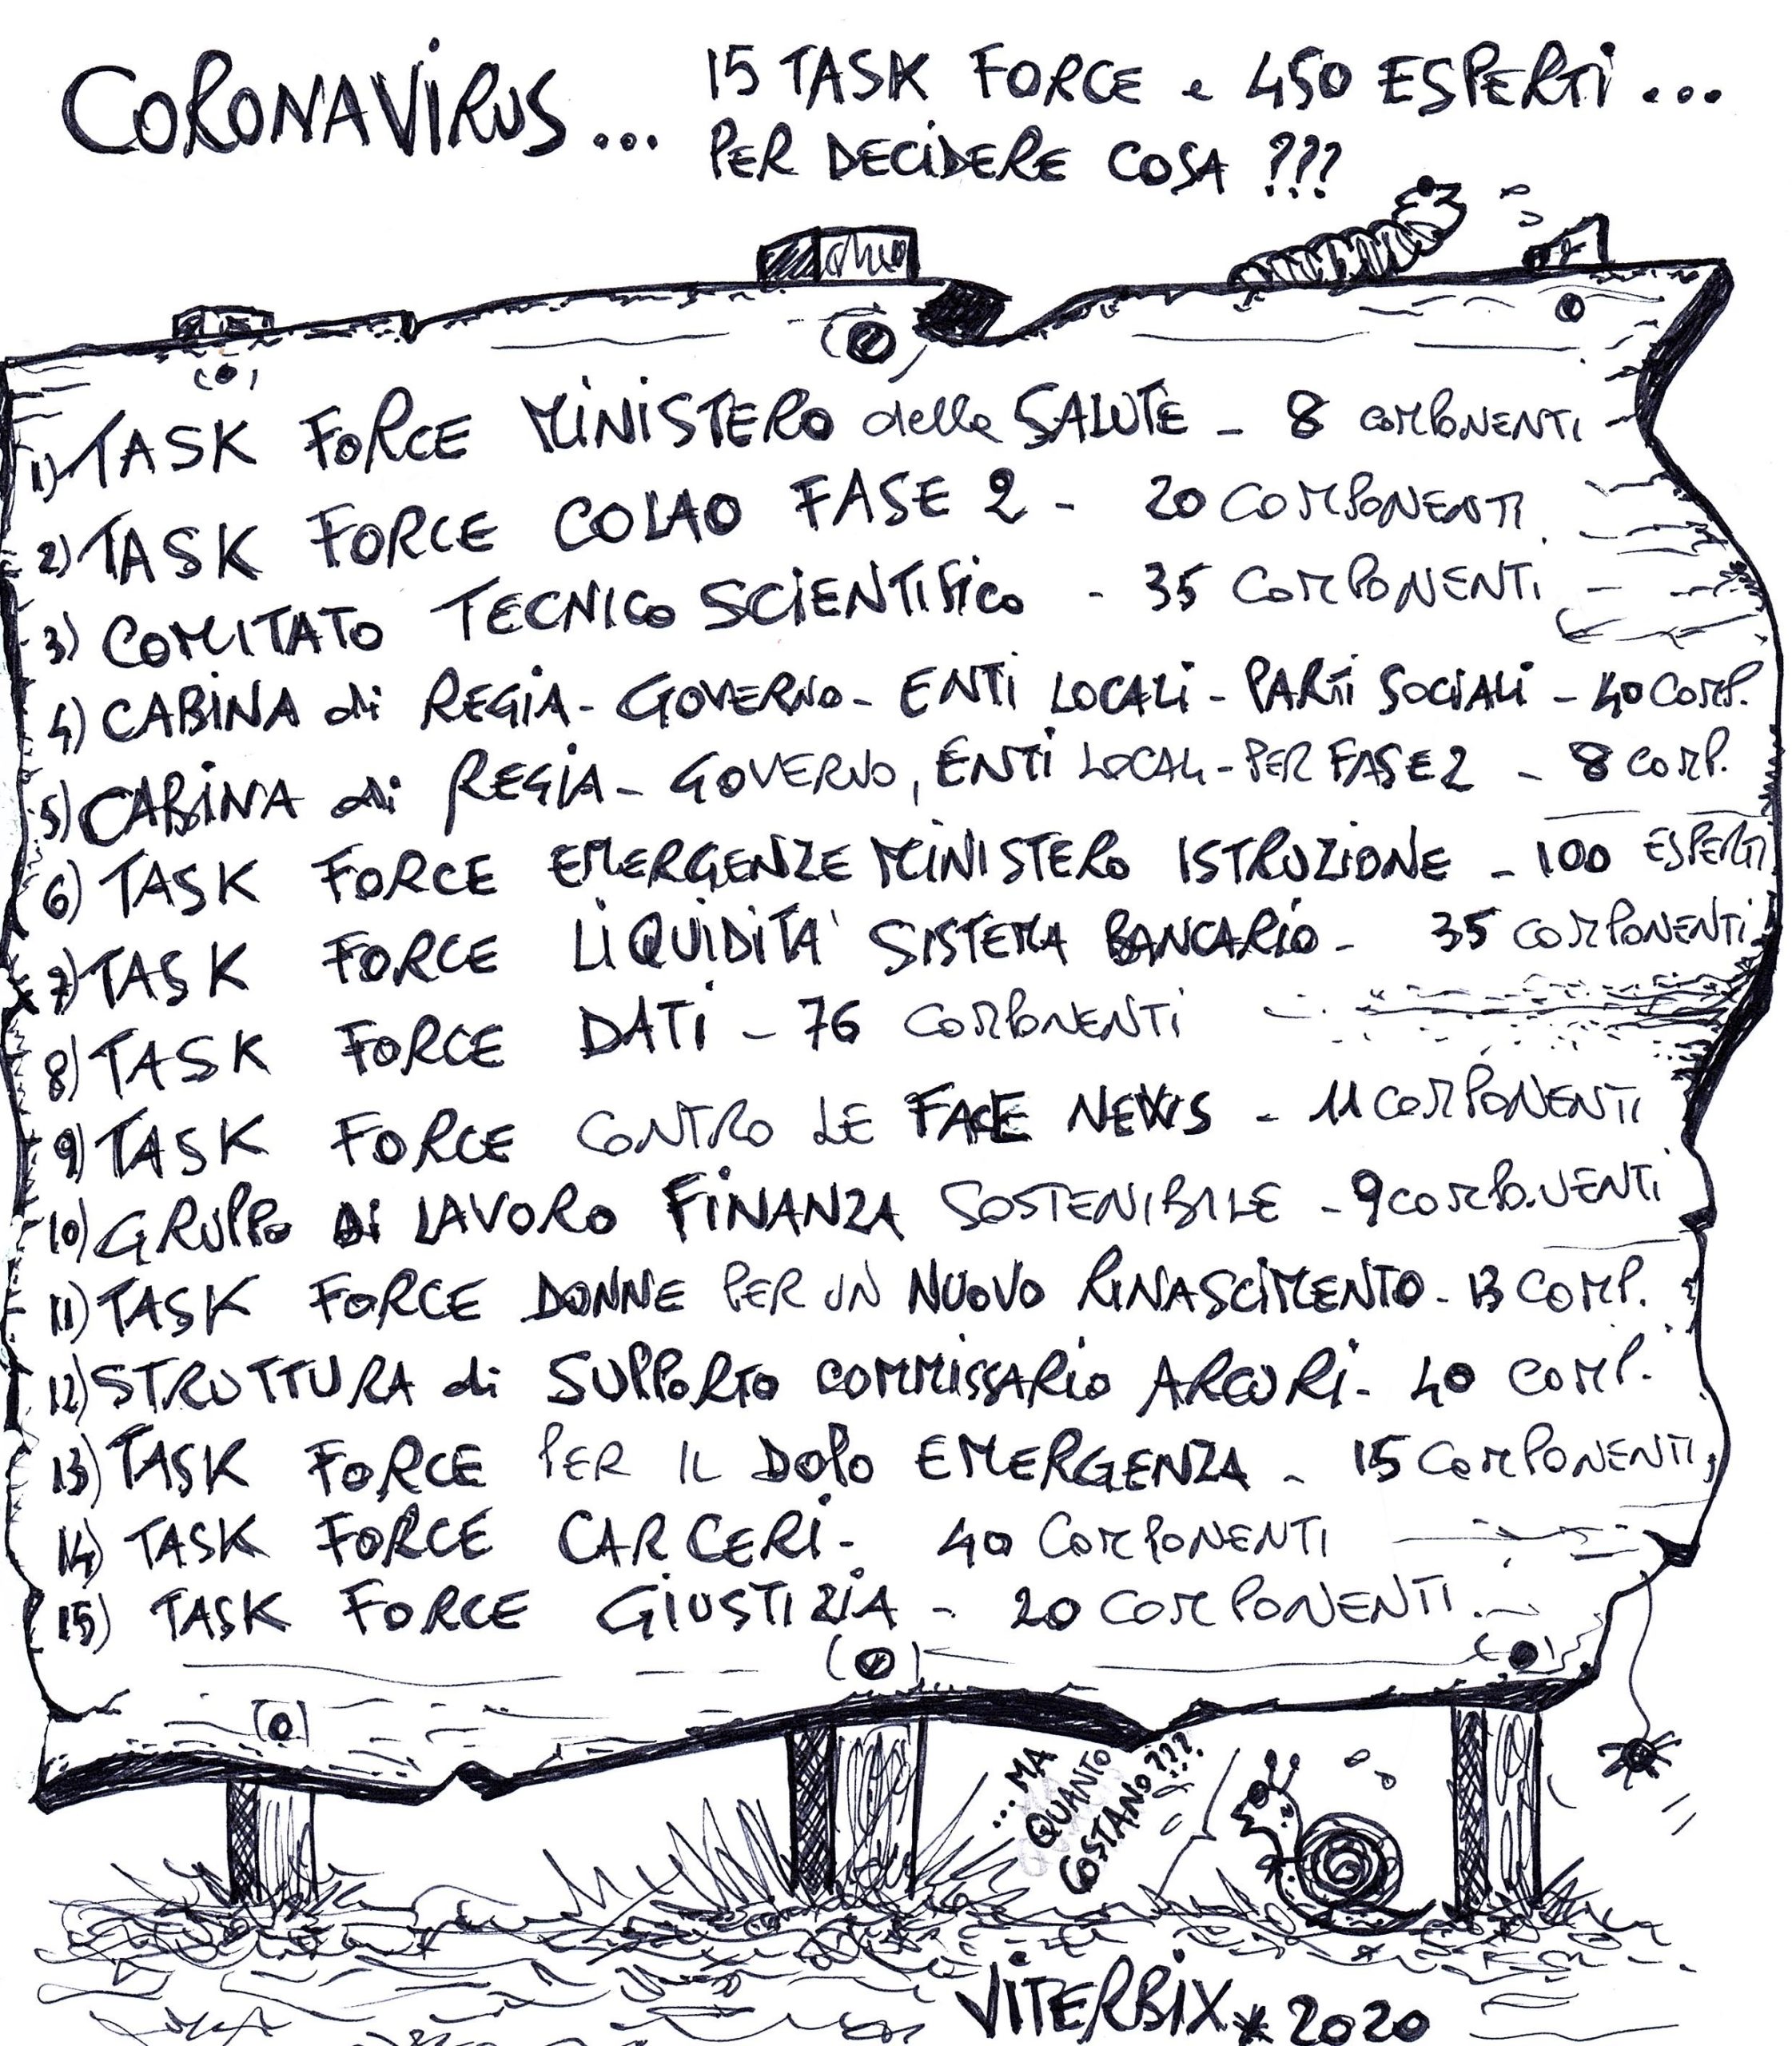 CORONAVIRUS...
15 TASK FORCE e 450 ESPERTI...
PER DECIDERE COSA ???
1) TASK FORCE MINISTERO della SALUTE - 8 COMPONENTI
2) TASK FORCE COLAO FASE 2 - 20 COMPONENTI
3) COMITATO TECNICO SCIENTIFICO - 35 COMPONENTI
4) CABINA di REGIA - GOVERNO - ENTI LOCALI - PARTI SOCIALI - 40 COMP.
5) CABINA di REGIA - GOVERNO, ENTI LOCALI - PER FASE 2 - 8 COMP.
6) TASK FORCE EMERGENZE MINISTERO ISTRUZIONE - 100 ESPERTI
7) TASK FORCE LIQUIDITA' SISTEMA BANCARIO - 35 COMPONENTI
8) TASK FORCE DATI - 76 COMPONENTI
9) TASK FORCE CONTRO LE FAKE NEWS - 11 COMPONENTI
10) GRUPPO DI LAVORO FINANZA SOSTENIBILE - 9 COMPONENTI
11) TASK FORCE DONNE PER UN NUOVO RINASCIMENTO - 13 COMP.
12) STRUTTURA di SUPPORTO COMMISSARIO ARCURI - 40 COMP.
13) TASK FORCE PER IL DOPO EMERGENZA - 15 COMPONENTI
14) TASK FORCE CARCERI - 40 COMPONENTI
15) TASK FORCE GIUSTIZIA - 20 COMPONENTI
...MA
QUANTO
COSTANO???
VITERBIX * 2020